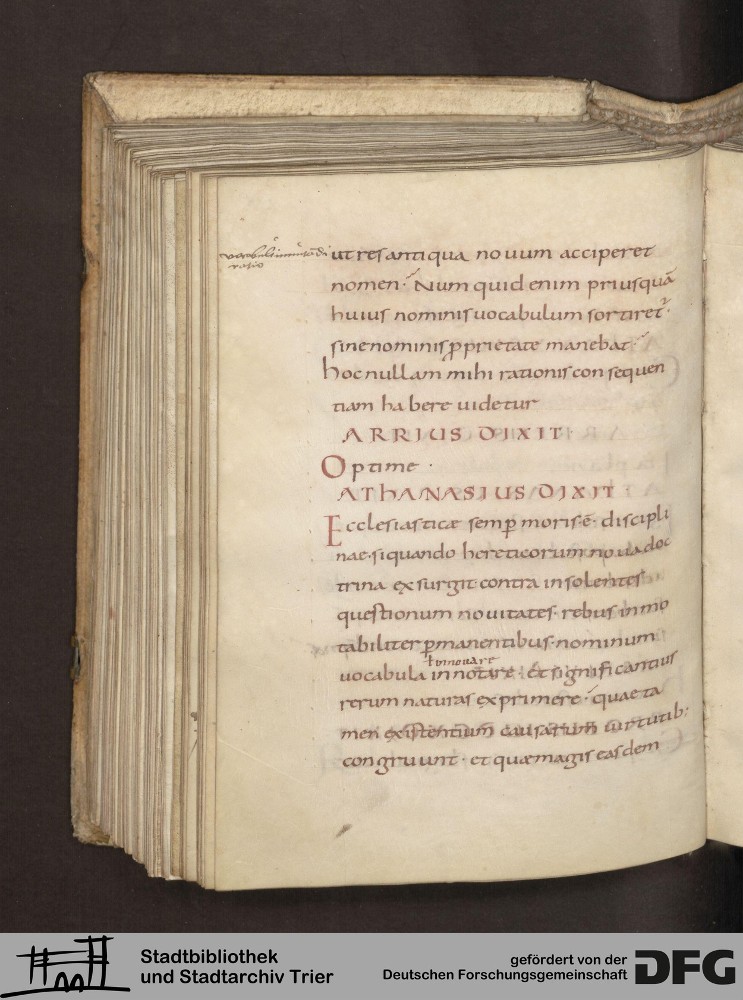 ut res antiqua nouum acciperet
nomen· Num quid enim priusquā
huius nominis uocabulum sortiret·
sine nominis ꝓprietate manebat·
hoc nullam mihi rationis consequen
tiam habere uidetur
ARRIUS DIXIT
Optime ·
ATHANASIUS DIXIT
Ecclesiasticæ semꝑ moris ē· discipli
nae· si quando hereticorum noua doc
trina exsurgit contra insolentes
questionum nouitates· rebus inmo
tabiliter ꝑmanentibus· nominum
ł innouare
uocabula innotare· et significantius
rerum naturas exprimere· quae ta
men existentium causarum uirtutib:
congruunt· et quæ magis easdem
Stadtbibliothek
und Stadtarchiv Trier
gefördert von der
Deutschen Forschungsgemeinschaft
DFG